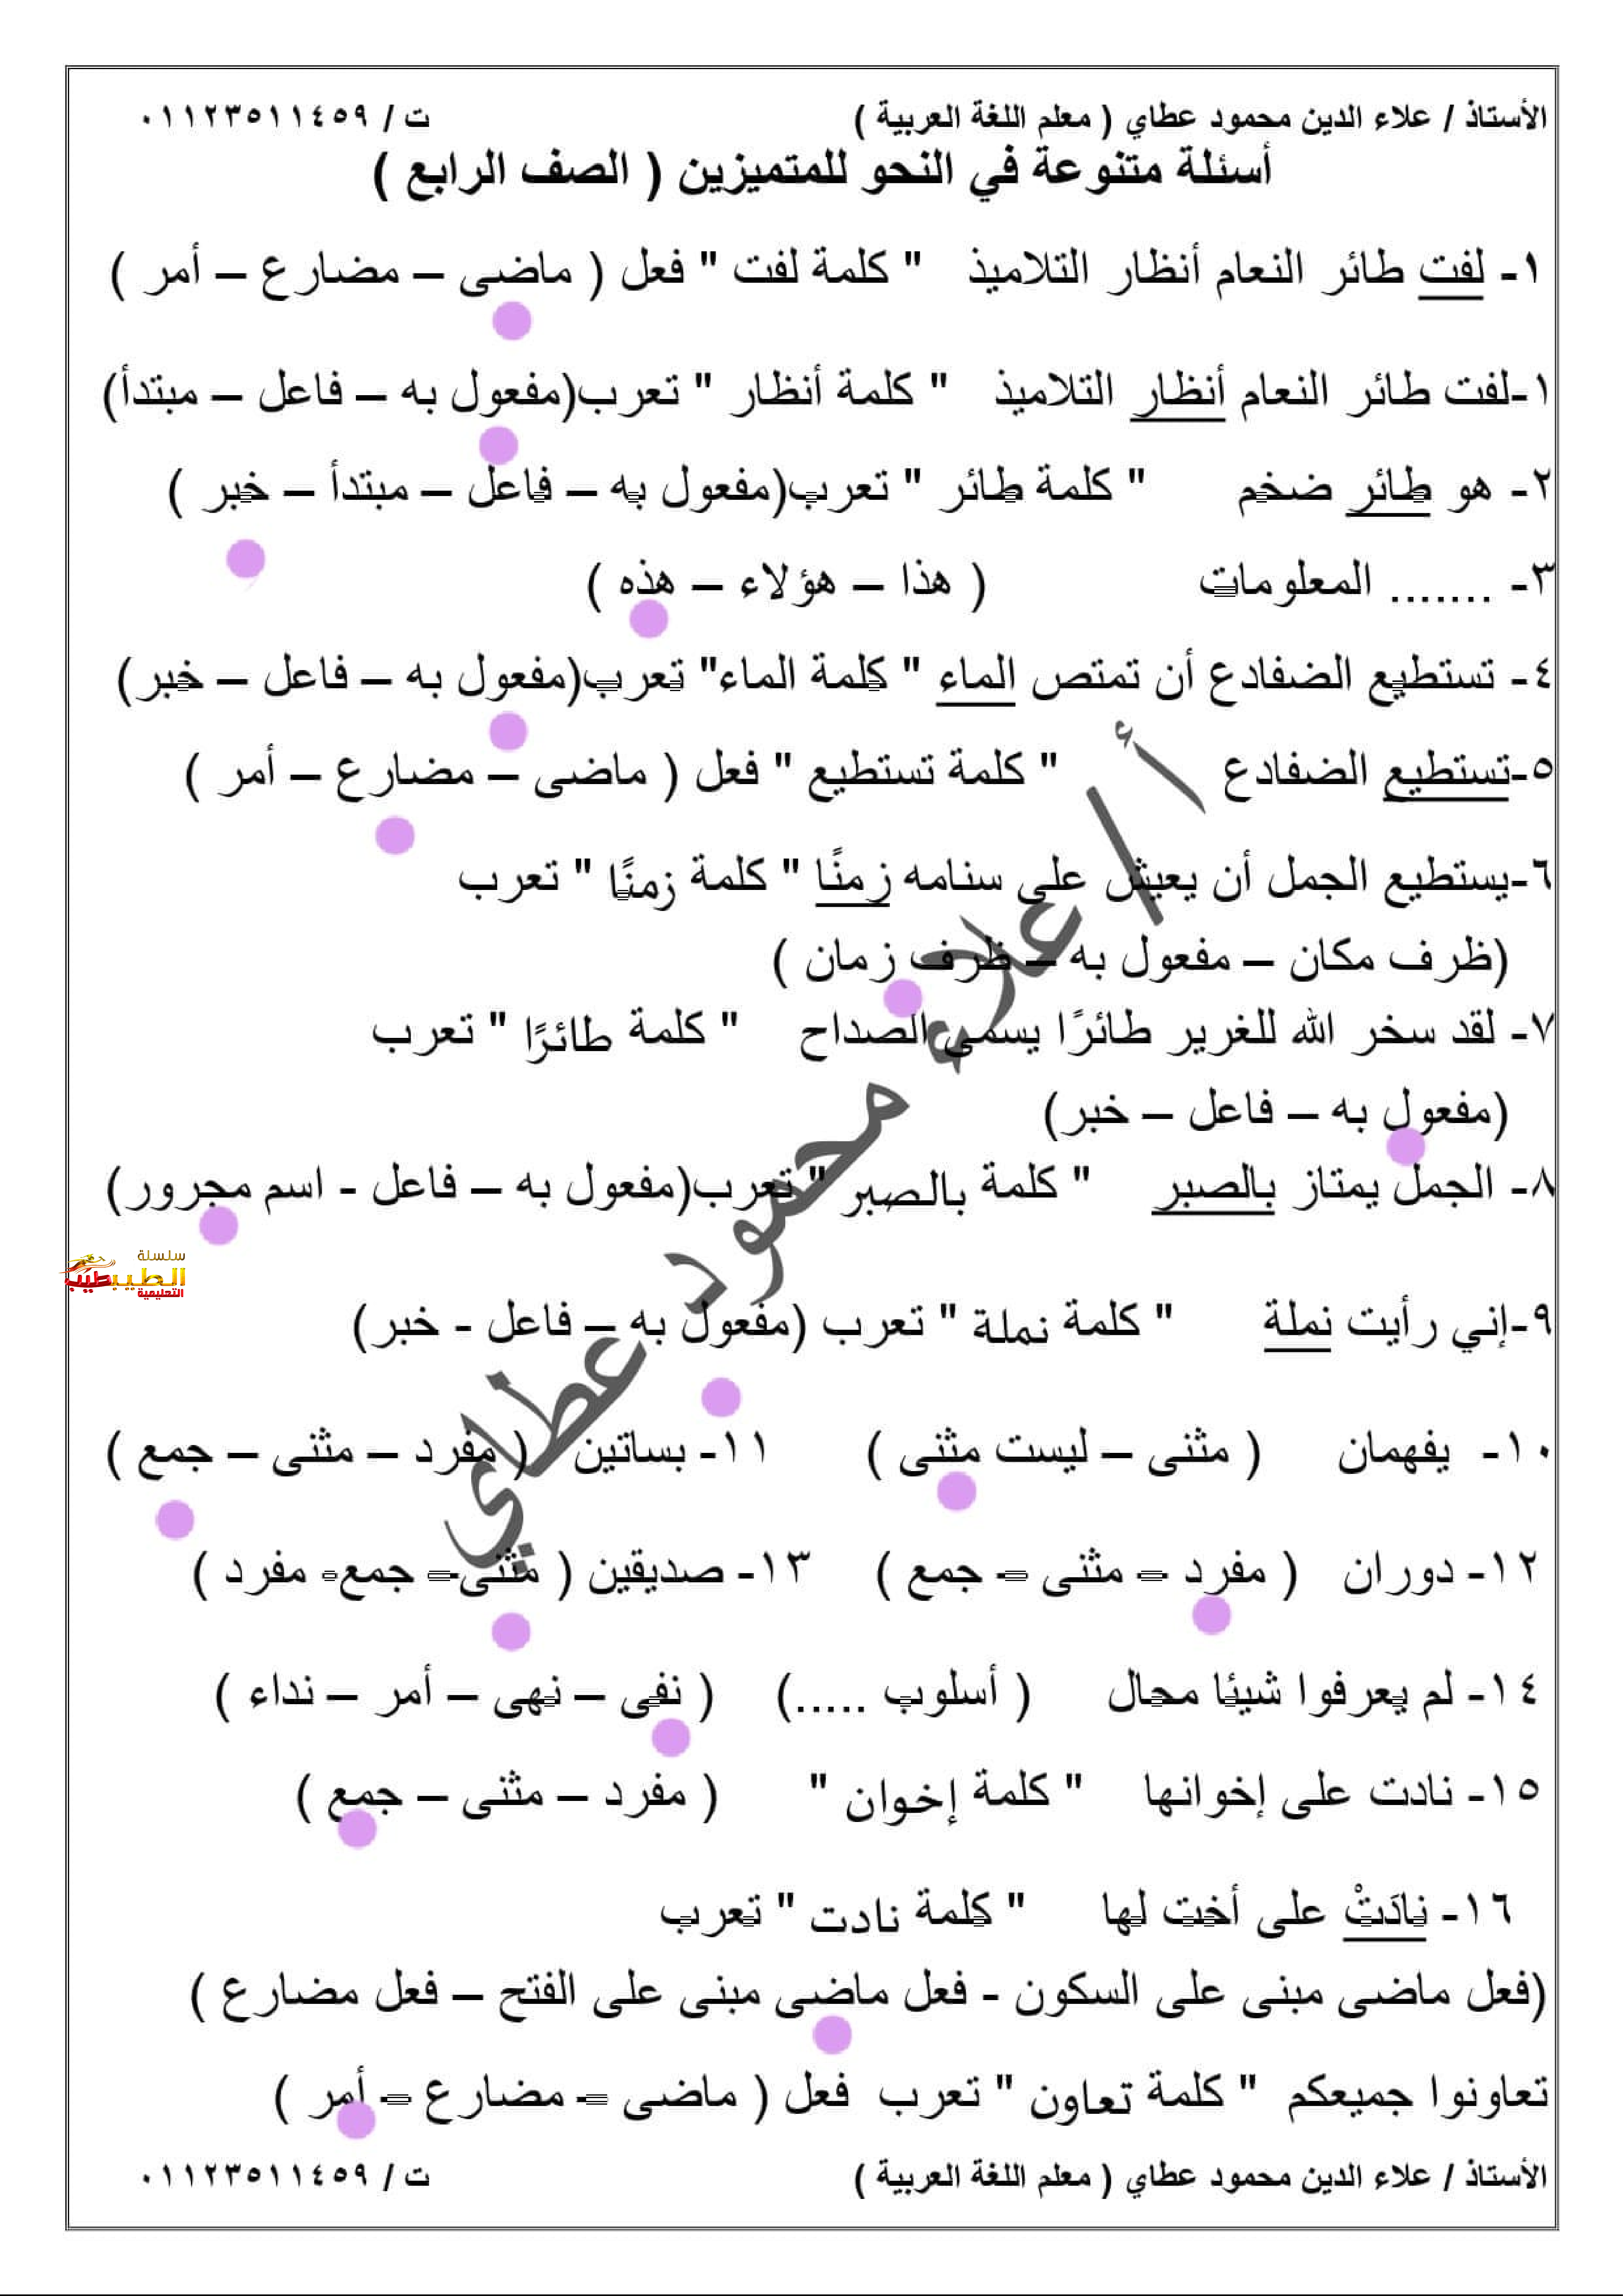 الأستاذ / علاء الدين محمود عطاي ( معلم اللغة العربية ) ت / ٠١١٢٣٥١١٤٥٩
أسئلة متنوعة في النحو للمتميزين ( الصف الرابع )
١- لفت طائر النعام أنظار التلاميذ " كلمة لفت " فعل ( ماضى – مضارع – أمر )
١-لفت طائر النعام أنظار التلاميذ " كلمة أنظار " تعرب(مفعول به – فاعل – مبتدأ)
٢- هو طائر ضخم " كلمة طائر " تعرب(مفعول به – فاعل – مبتدأ – خبر )
٣- ....... المعلومات ( هذا – هؤلاء – هذه )
٤- تستطيع الضفادع أن تمتص الماء " كلمة الماء" تعرب(مفعول به – فاعل – خبر)
٥-تستطيع الضفادع " كلمة تستطيع " فعل ( ماضى – مضارع – أمر )
٦-يستطيع الجمل أن يعيش على سنامه زمنًا " كلمة زمنًا " تعرب
(ظرف مكان – مفعول به – ظرف زمان )
٧- لقد سخر الله للغرير طائرًا يسمى الصداح " كلمة طائرًا " تعرب
(مفعول به – فاعل – خبر)
٨- الجمل يمتاز بالصبر " كلمة بالصبر " تعرب(مفعول به – فاعل - اسم مجرور)
سلسلة
الطيبطيب
التعليمية
٩-إني رأيت نملة " كلمة نملة " تعرب (مفعول به – فاعل - خبر)
١٠- يفهمان ( مثنى – ليست مثنى ) ١١- بساتين ( مفرد – مثنى – جمع )
١٢- دوران ( مفرد – مثنى – جمع ) ١٣- صديقين ( مثنى – جمع- مفرد )
١٤- لم يعرفوا شيئا محال ( أسلوب .....) ( نفى – نهى – أمر – نداء )
١٥- نادت على إخوانها " كلمة إخوان " ( مفرد – مثنى – جمع )
١٦- نادَتْ على أخت لها " كلمة نادت " تعرب
(فعل ماضى مبنى على السكون - فعل ماضى مبنى على الفتح – فعل مضارع )
تعاونوا جميعكم " كلمة تعاون " تعرب فعل ( ماضى – مضارع – أمر )
الأستاذ / علاء الدين محمود عطاي ( معلم اللغة العربية ) ت / ٠١١٢٣٥١١٤٥٩
أ / علاء محمود عطاي